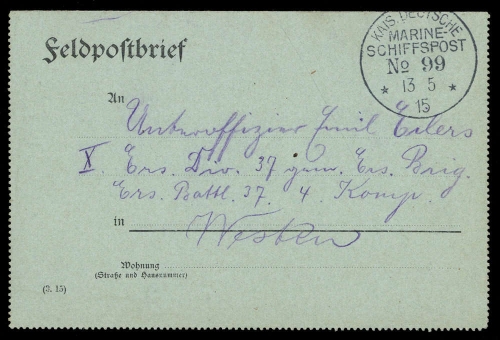 Feldpostbrief
KAIS. DEUTSCHE
MARINE-
SCHIFFSPOST
No 99
* 13 5 *
15
An
Unteroffizier Emil Eilers
X. Ers. Div. 37 gem. Ers. Brig.
Ers. Battl. 37. 4 Komp.
in Westen
Wohnung
(Straße und Hausnummer)
(3. 15)